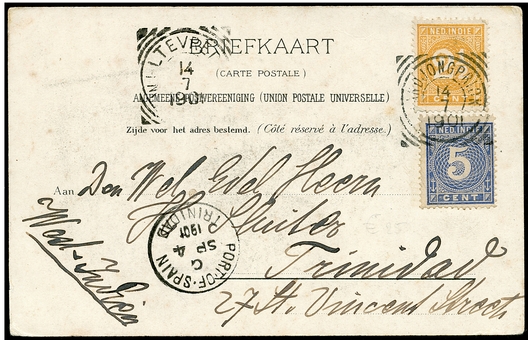 BRIEFKAART
(CARTE POSTALE)
ALGEMEENE POSTVEREENIGING (UNION POSTALE UNIVERSELLE)
Zijde voor het adres bestemd. (Côté réservé à l'adresse.)
14
7
1901
NED. INDIE
CENT
TANDJONGPRIOK
14
7
1901
NED. INDIE
5
CENT
Aan Den Wel Edel Heern
Trinidad
27 St. Vincent Street
West-Indien
PORT-OF-SPAIN
C
SP 4
1901
TRINIDAD